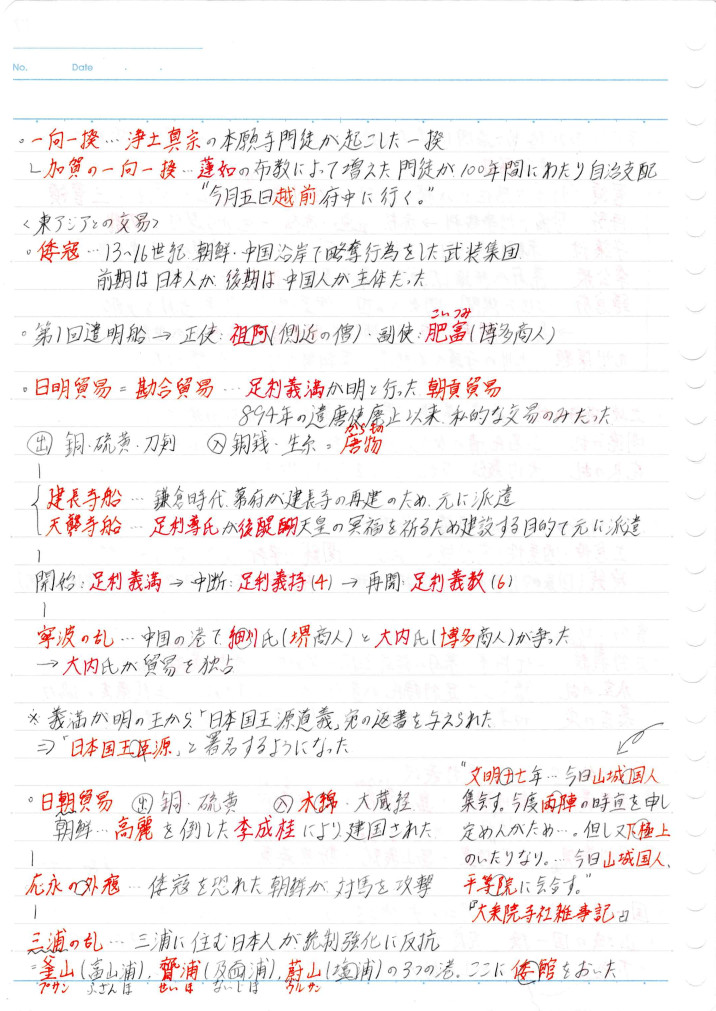 No.  Date
◦一向一揆…浄土真宗の本願寺門徒が起こした一揆
└加賀の一向一揆…蓮如の布教によって増えた門徒が100年間にわたり自治支配
"今月五日越前府中に行く。"
<東アジアとの交易>
◦倭寇…13~16世紀、朝鮮・中国沿岸で略奪行為をした武装集団
前期は日本人が、後期は中国人が主体だった
こいつみ
◦第1回遣明船→正使:祖阿(側近の僧)・副使:肥富(博多商人)
◦日明貿易=勘合貿易…足利義満が明と行った朝貢貿易
894年の遣唐使廃止以来、私的な交易のみだった
からもの
出 銅・硫黄・刀剣 入 銅銭・生糸=唐物
建長寺船…鎌倉時代、幕府が建長寺の再建のため、元に派遣
天龍寺船…足利尊氏が後醍醐天皇の冥福を祈るため建設する目的で元に派遣
開始:足利義満→中断:足利義持(4)→再開:足利義教(6)
寧波の乱…中国の港で、細川氏(堺商人)と大内氏(博多商人)が争った
→大内氏が貿易を独占
※義満が明の王から「日本国王源道義」宛の返書を与えられた
⇒「日本国王臣源」と署名するようになった
◦日朝貿易 出 銅・硫黄 入 木綿・大蔵経
朝鮮…高麗を倒した李成桂により建国された
応永の外寇…倭寇を恐れた朝鮮が、対馬を攻撃
三浦の乱…三浦に住む日本人が統制強化に反抗
=釜山(富山浦)、薺浦(乃而浦)、蔚山(塩浦)の3つの港。ここに倭館をおいた
プサン ふさんほ せいほ ないじほ ウルサン
"文明十七年…今日山城国人
集会す。今度両陣の時宜を申し
定めんがため…。但し又下極上
のいたりなり。…今日山城国人、
平等院に会合す。"
『大乗院寺社雑事記』